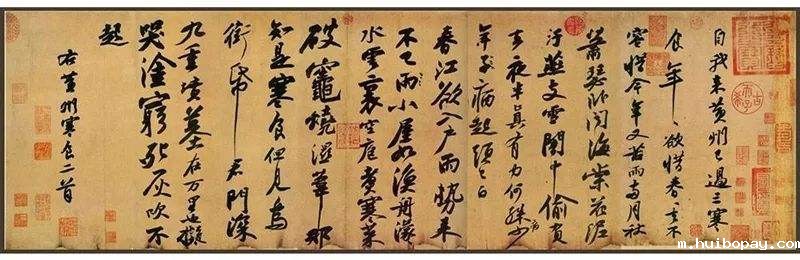 自我來黃州已過三寒
食年〻欲惜春〻去不
容惜今年又苦雨兩月秋
蕭瑟臥聞海棠花泥
汙燕支雪闇中偷負
去夜半真有力何殊少
年子病起頭已白
春江欲入戶雨勢來
不已雨小屋如漁舟濛〻
水雲裏空庖煮寒菜
破竈燒濕葦那
知是寒食但見烏
銜帋君門深
九重墳墓在万里也擬
哭塗窮死灰吹不
起
右黃州寒食二首
m.huibopay.com